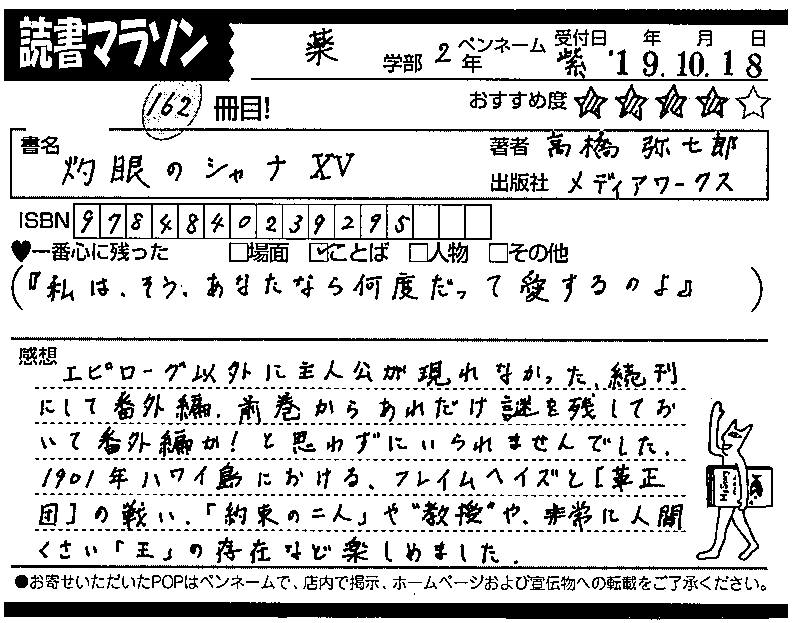 読書マラソン
薬 学部 2年 ペンネーム 紫 受付日 年 月 日 '19.10.18
162 冊目! おすすめ度 ★★★★☆
書名 灼眼のシャナ XV 著者 高橋 弥七郎
出版社 メディアワークス
ISBN 9784840239295
♥一番心に残った □場面 ☑ことば □人物 □その他
(『私は、そう、あなたなら何度だって愛するのよ』)
感想
エピローグ以外に主人公が現れなかった、続刊
にして番外編。前巻からあれだけ謎を残してお
いて番外編か!と思わずにいられませんでした。
1901年ハワイ島における、フレイムヘイズと[革正
団]の戦い、「約束の二人」や"教授"や、非常に人間
くさい「王」の存在など楽しめました。
●お寄せいただいたPOPはペンネームで、店内で掲示、ホームページおよび宣伝物への転載をご了承ください。